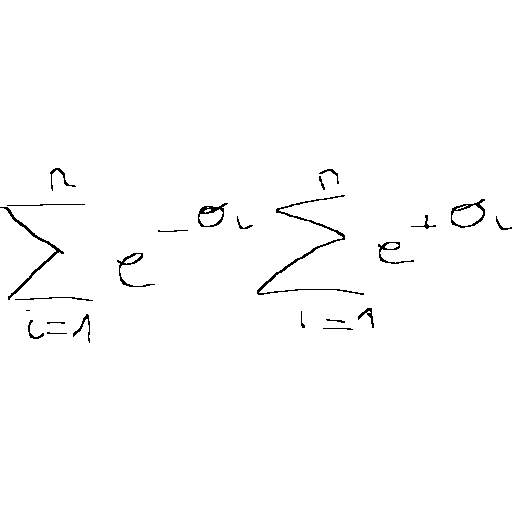 \sum_{i=1}^{n} e^{-\sigma_i} \sum_{i=1}^{n} e^{+\sigma_i}